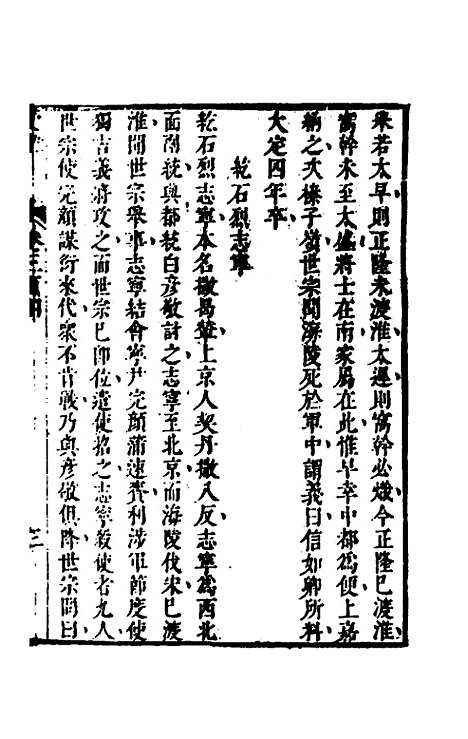 來若太早則正隆未渡淮太遲則窩幹必熾今正隆已渡淮
窩幹未至太盛將士在南家屬在此惟早幸中都爲便上嘉
納之大榛子嶺世宗聞海陵死於軍中謂義曰信如卿所料
大定四年卒
紇石烈志寧
紇石烈志寧本名撒曷輦上京人契丹撒八反志寧爲西北
面副統與都統白彥敬討之志寧至北京而海陵伐宋已渡
淮聞世宗舉事志寧結會寧尹完顏蒲速賚利涉軍節度使
獨吉義將攻之而世宗已卽位遣使招之志寧殺使者九人
世宗使完顏謀衍來伐衆不肯戰乃與彥敬俱降世宗問曰